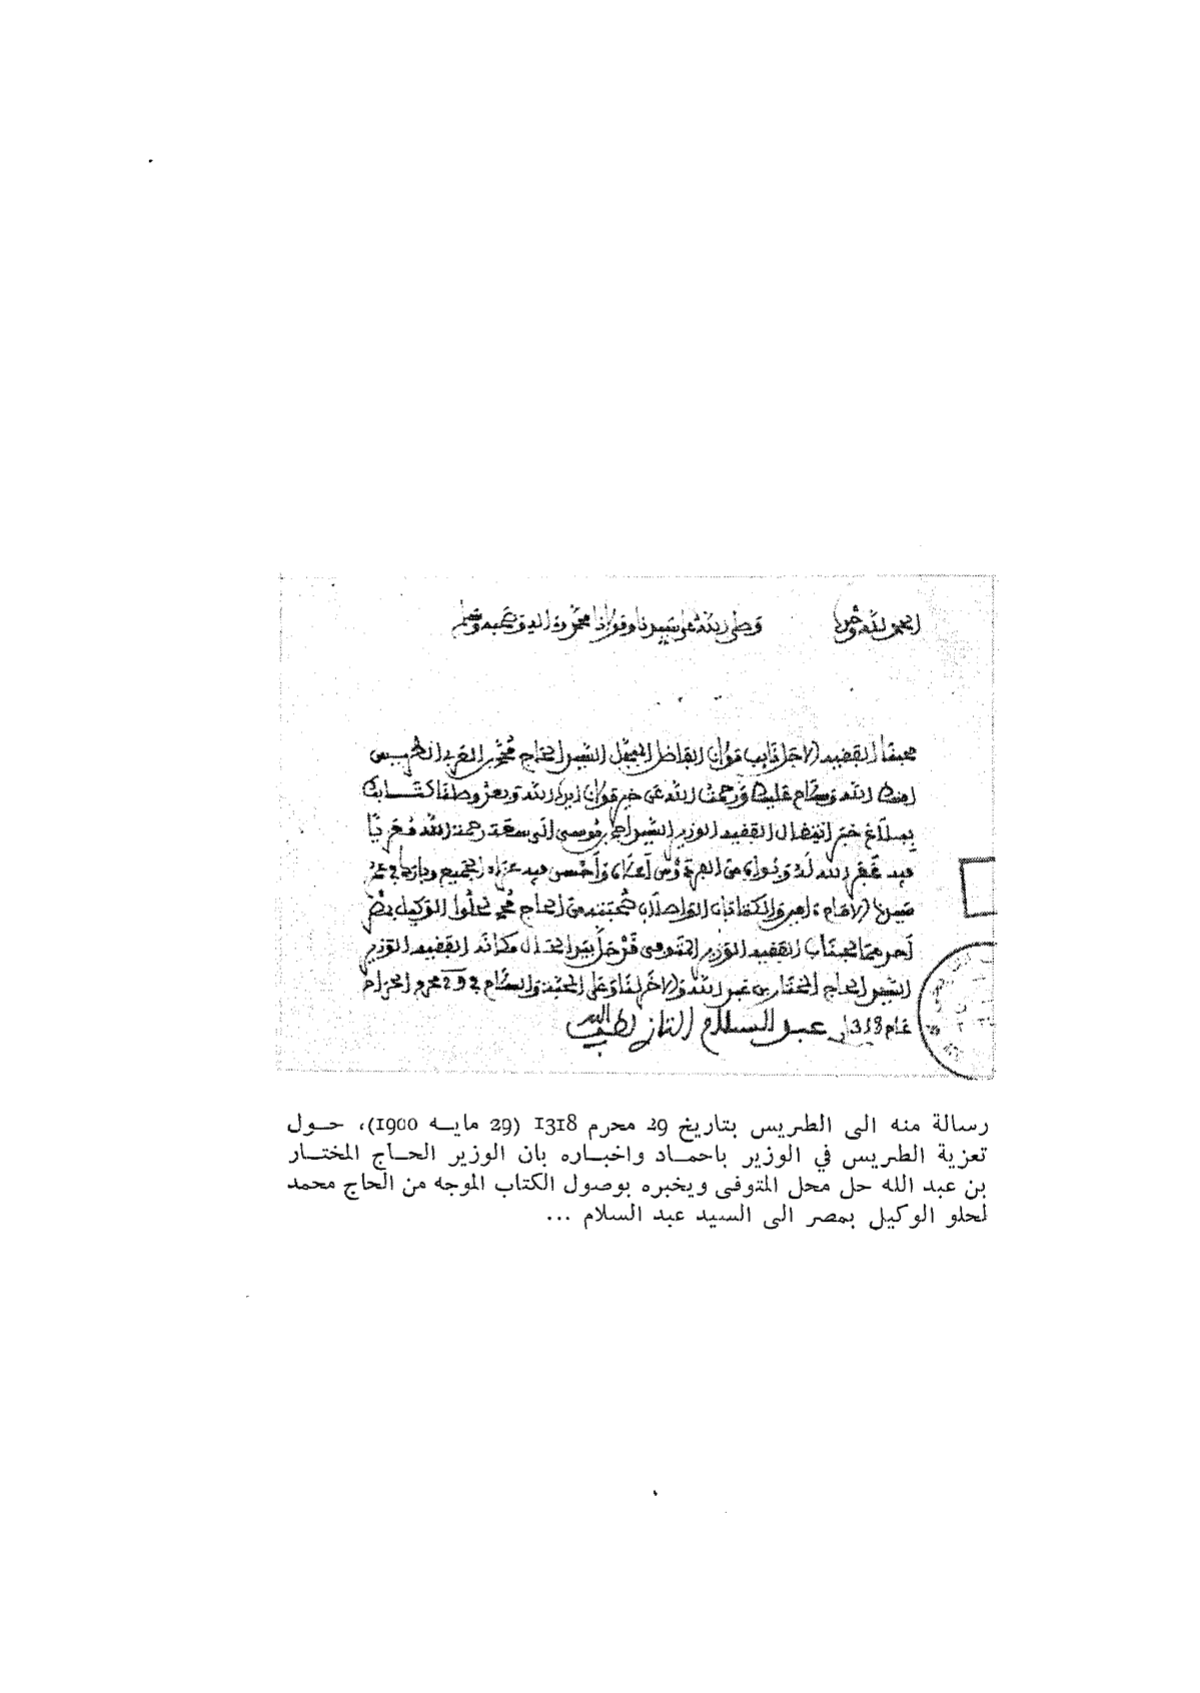 الحمد لله وحده وصلى الله على سيدنا ومولانا محمد وءاله وصحبه وسلم
محبنا الفقيه الاجل نايب مولانا الفاضل المبجل السيد الحاج محمد بن العربي الطريس
امنك الله وسلام عليك ورحمت الله عن خير مولانا ايده الله وبعد وصلنا كتابك
ببلاغ خبر انتقال الفقيه الوزير السيد احمد بن موسى الى سعة رحمة الله معزيا
فيه غفر الله له وأحسن فيه عزاء الجميع وبارك في عمر
سيدنا الامام الواصلان صحبته من الحاج محمد لحلوا الوكيل بمصر
احدهما لجناب الفقيه الوزير المتوفى قد حل بيد الحال مكانه الفقيه الوزير
السيد الحاج المختار بن عبد الله والاخر لنا وعلى المحبة والسلام في 29 محرم الحرام
عام 1318 عبد السلام التازي لطف الله به
رسالة منه الى الطريس بتاريخ 29 محرم 1318 (29 مايــه 1900)، حــول
تعزية الطريس في الوزير باحمــاد واخبــاره بان الوزير الحــاج المختــار
بن عبد الله حل محل المتوفى ويخبره بوصول الكتاب الموجه من الحاج محمد
لحلو الوكيل بمصر الى السيد عبد السلام ...